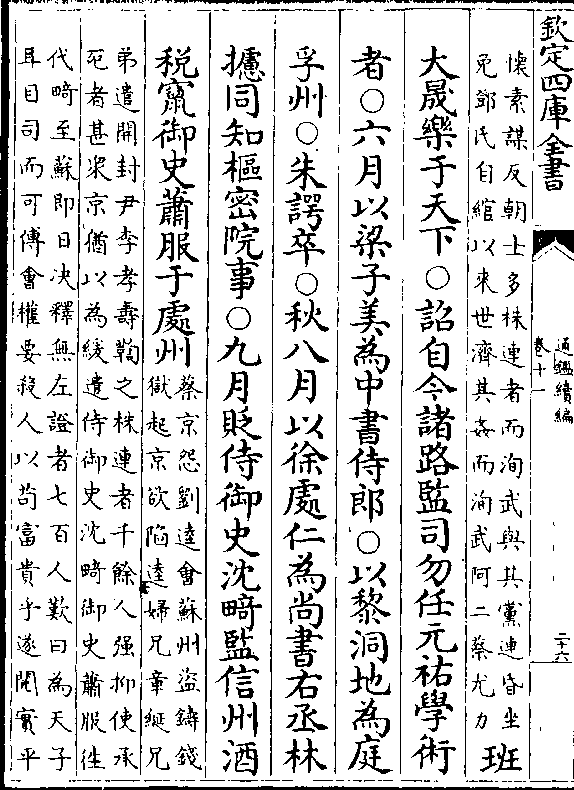 欽定四庫全書
通鑑續編
卷十一
二十六
懐素謀反朝士多株連者而洵武與其黨連昏坐
免鄧氏自綰以來世濟其姦而洵武阿二蔡尤力
班
大晟樂于天下○詔自今諸路監司勿任元祐學術
者○六月以梁子美為中書侍郎○以黎洞地為庭
孚州○朱諤卒○秋八月以徐處仁為尚書右丞林
攄同知樞密院事○九月貶侍御史沈畸監信州酒
税竄御史蕭服于處州
蔡京怨劉逵會蘇州盜鑄錢
獄起京欲陷逵婦兄章綖兄
弟遣開封尹李孝壽鞫之株連者千餘人强抑使承
死者甚衆京猶以為緩遣侍御史沈畸御史蕭服徃
代畸至蘇即日决釋無左證者七百人歎曰為天子
耳目司而可傅會權要殺人以茍富貴乎遂閲實平